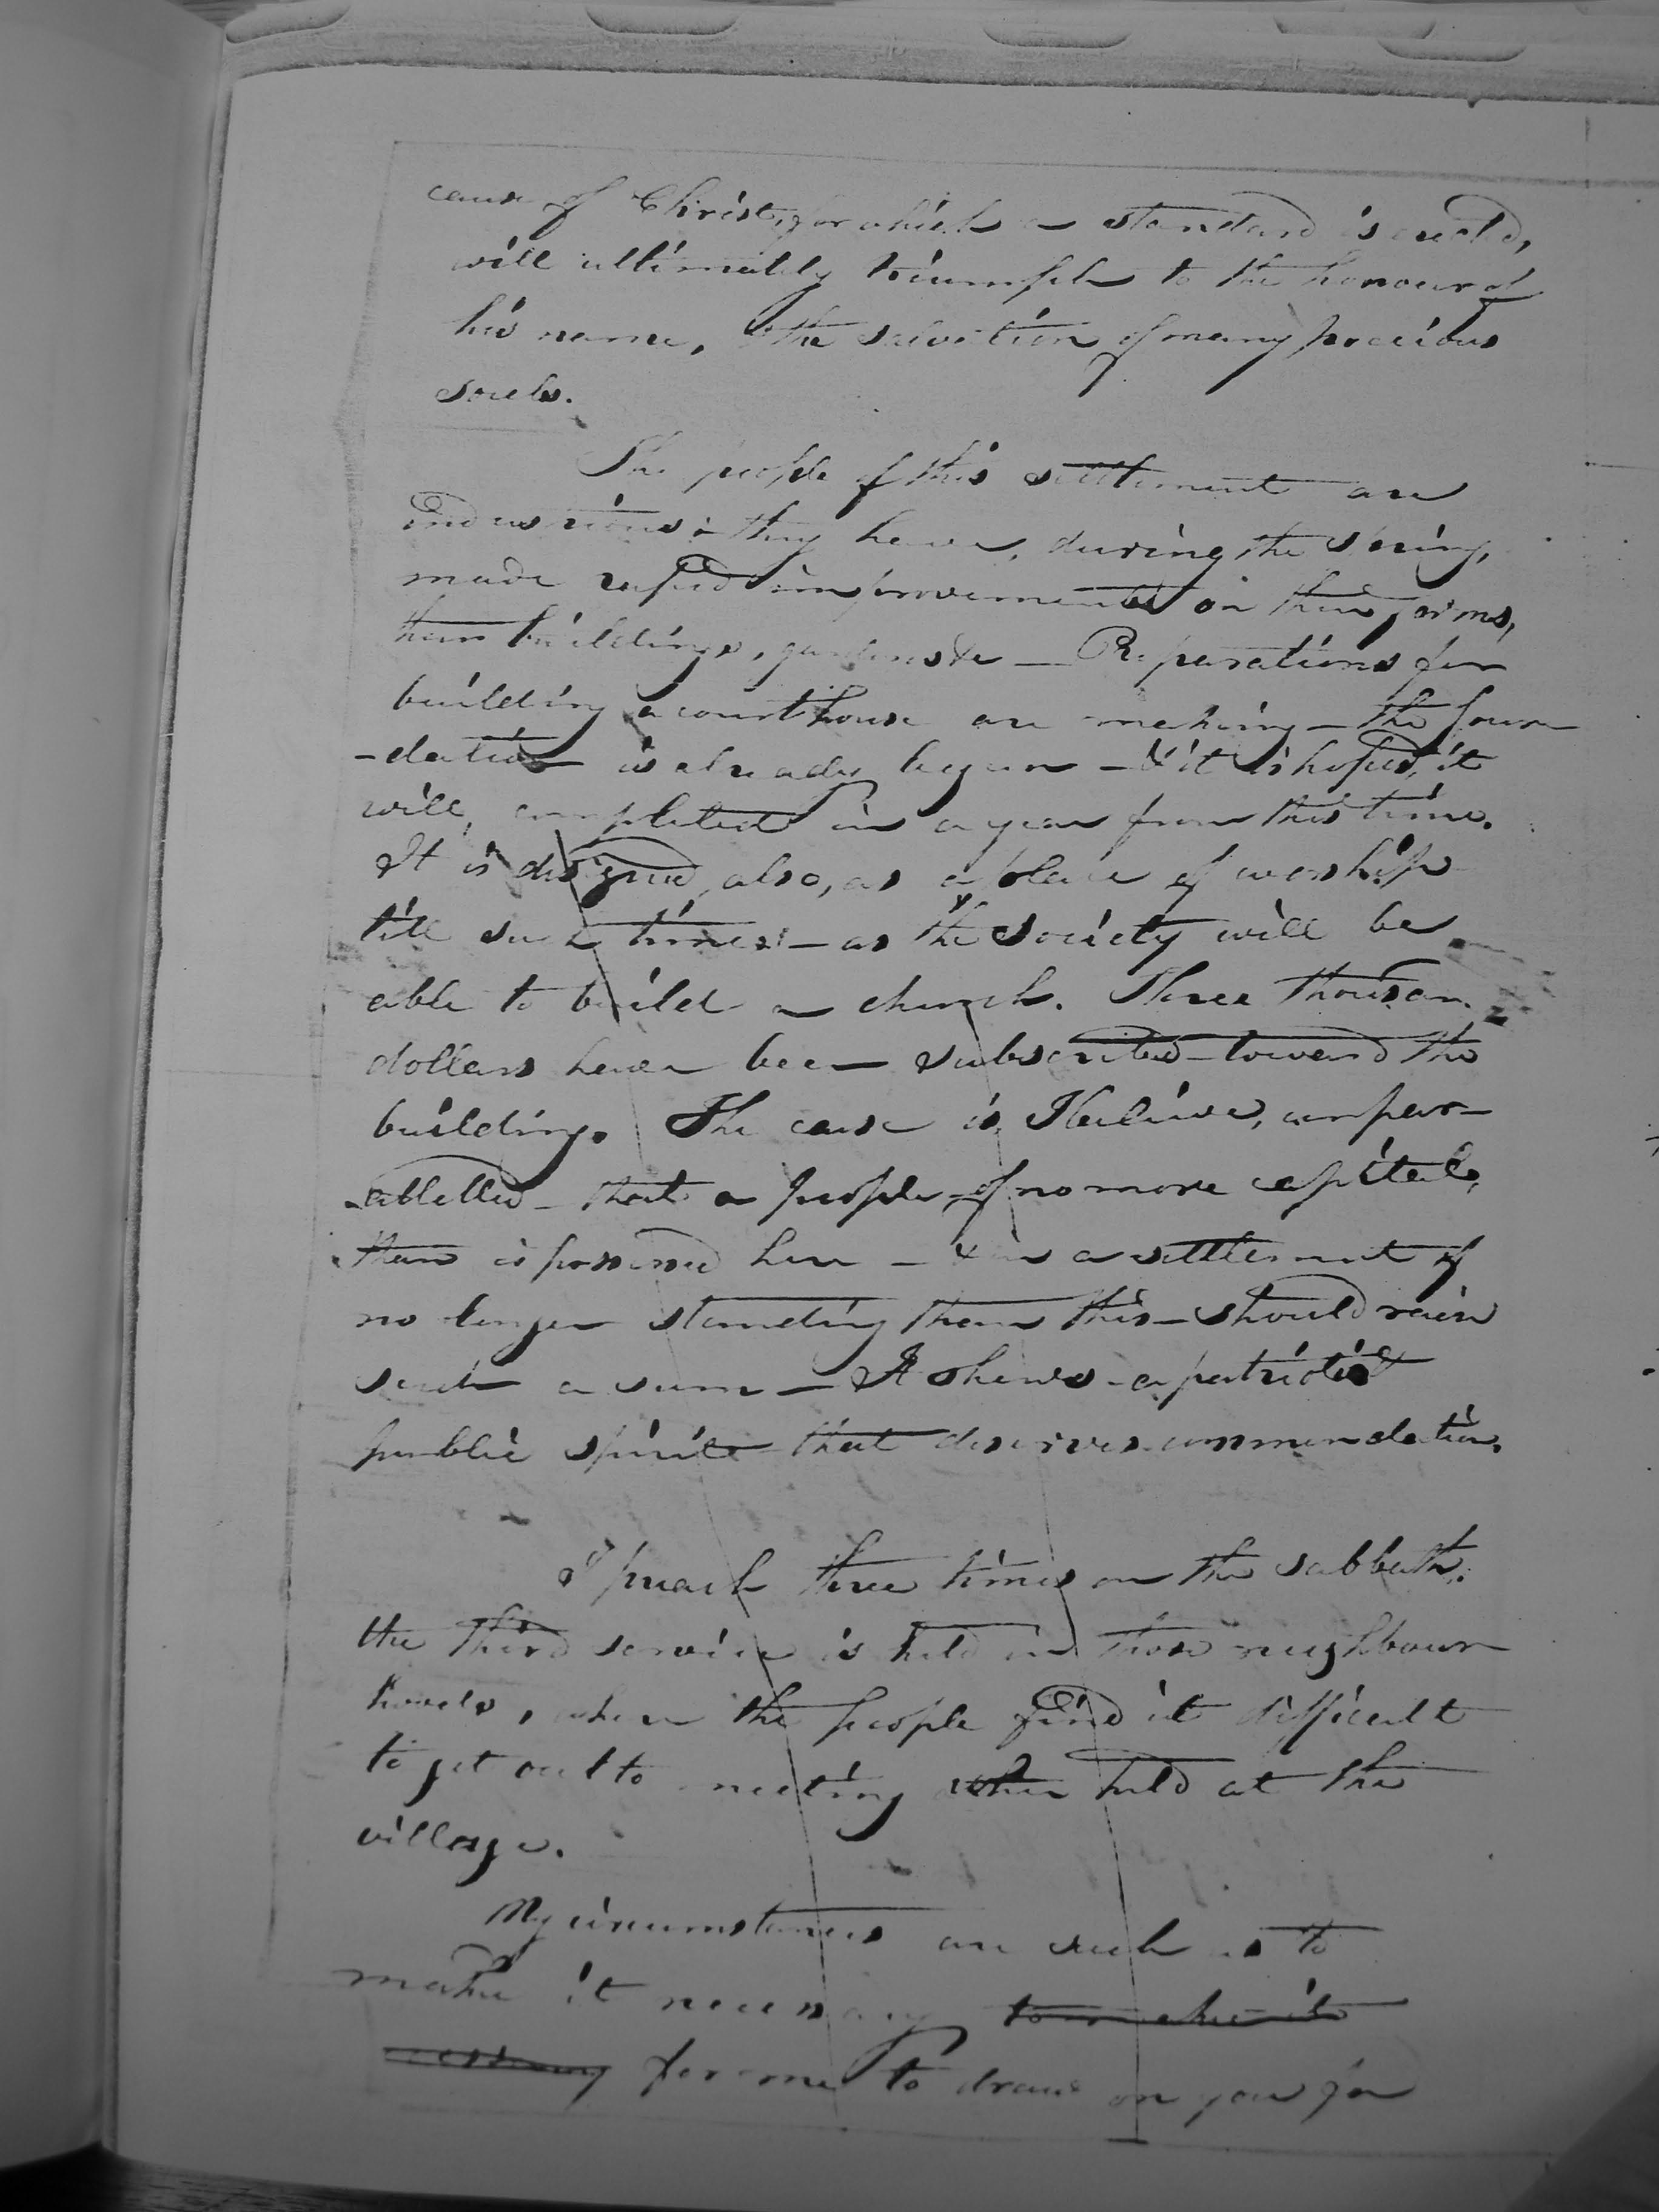 cause of Christ, for which a standard is erected,
will ultimately triumph to the honour of
his name, & the salvation of many precious
souls.
The people of this settlement are
industrious & they have, during the spring,
made rapid improvements on their farms,
their buildings, gardens &c — Preparations for
building a court house are making — the foun
-dation is already begun — & it is hoped, it
will, completed in a year from this time.
It is designed, also, as a place of worship
till such times — as the society will be
able to build a church. Three thousan
dollars have been subscribed toward the
building. The case is, I believe, unpar-
-alelled — that a people, of no more capital,
than is possessed here — & in a settlement of
no longer standing than this — should raise
such a sum — It shews a patriotic
public spirit that deserves commendation.
I preach three times on the sabbath.
the third service is held in those neighbour
hoods, where the people find it difficult
to get out to meeting when held at the
village.
My circumstances are such as to
make it necessary to make it
necessary for me to draw on you for